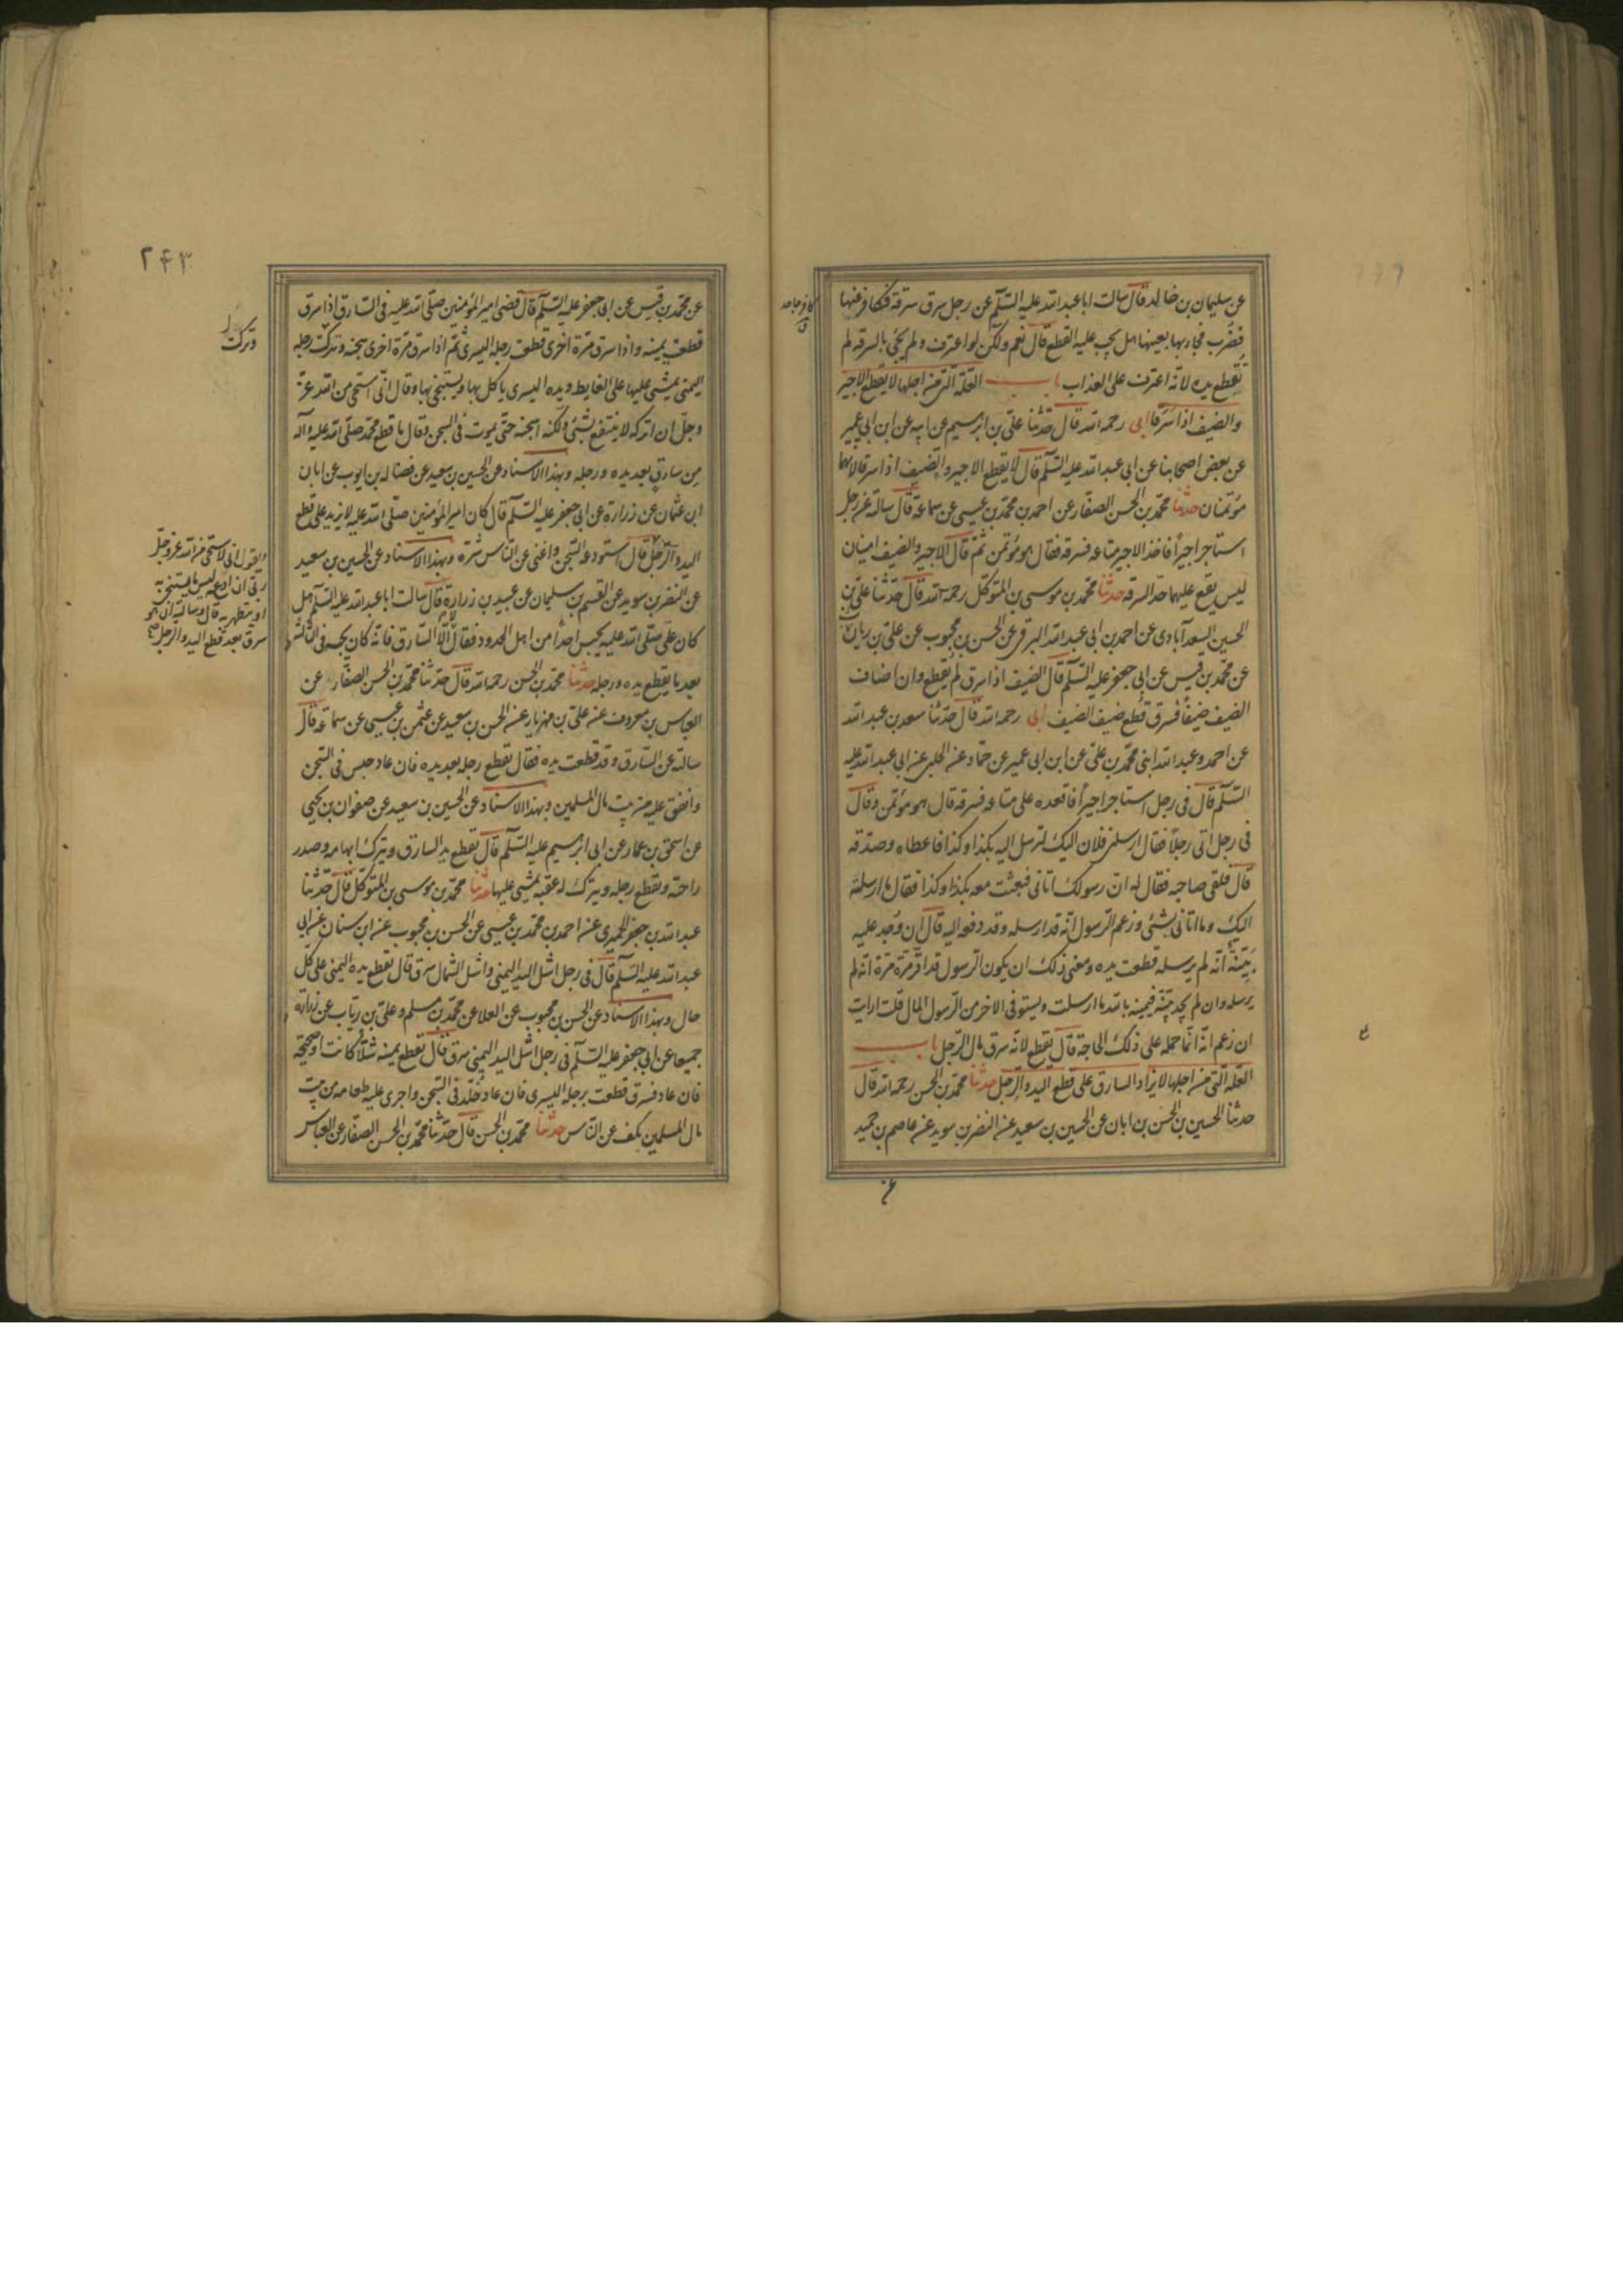 عن سليمان بن خالد قال سالت ابا عبد الله عليه السلم عن رجل سرق سرقة فكافر عنها
فضُرب فجاء بها بعينها هل يجب عليه القطع قال نعم ولكن لو اعترف ولم يجئ بالسرقة لم
تُقطع يده لانّه اعترف على العذاب باب العلّة التى من اجلها لا يقطع الاجير
والضيف اذا سَرَقا ابى رحمه الله قال حدّثنا علىّ بن ابرهيم عن ابيه عن ابن ابى عمير
عن بعض اصحابنا عن ابى عبد الله عليه السّلم قال لا يقطع الاجير والضّيف اذا سرقا لانهما
مؤتمنان حدثنا محمّد بن الحسن الصفّار عن احمد بن محمّد بن عيسى عن سماعة قال سالته عن رجل
استاجر اجيراً فاخذ الاجير متاعه فسرقه فقال هو مؤتمن ثمّ قال الاجير والضيف امينان
ليس يقع عليهما حدّ السرقة حدثنا محمّد بن موسى بن المتوكّل رحمه الله قال حدّثنا علىّ بن
الحسين السعدآبادى عن احمد بن ابى عبد الله البرقى عن الحسن بن محبوب عن علىّ بن رياب
عن محمّد بن قيس عن ابى جعفر عليه السّلم قال الضيف اذا سرق لم يُقطع وان اضاف
الضيف ضيفاً فسرق قُطع ضيف الضيف ابى رحمه الله قال حدّثنا سعد بن عبد الله
عن احمد وعبد الله ابنى محمّد بن علىّ عن ابن ابى عمير عن حمّاد عن الحلبى عن ابى عبد الله عليه
السّلم قال فى رجل استاجر اجيراً فاقعده على متاعه فسرقه قال هو مؤتمن وقال
فى رجل اتى رجلاً فقال ارسلنى فلان اليك لترسل اليه بكذا وكذا فاعطاه وصدّقه
قال فلقى صاحبه فقال له انّ رسولك اتانى فبعثت معه بكذا وكذا فقال ما ارسلته
اليك وما اتانى بشئ وزعم الرّسول انّه قد ارسله وقد دفعه اليه قال ان وُجد عليه
بَيّنة انّه لم يرسله قطعت يده ومعنى ذلك ان يكون الرّسول قد اقرّ مرّة مرّة انّه لم
يرسله وان لم يجد بيّنة فيمينه بالله ما ارسلت ويستوفى الاخر من الرّسول المال قلت ارايت
ان زعم انّه انّما حمله على ذلك الحاجة قال يقطع لانّه سرق مال الرّجل باب
العلّة التى من اجلها لا يزاد السارق على قطع اليد والرّجل حدثنا محمّد بن الحسن رحمه الله قال
حدثنا الحسين بن الحسن بن ابان عن الحسين بن سعيد عن النضر بن سويد عن عاصم بن حميد
عن محمّد بن قيس عن ابى جعفر عليه السّلم قال قضى امير المؤمنين صلّى الله عليه فى السّارق اذا سرق
قطعت يمينه واذا سرق مرّة اخرى قطعت رجله اليسرى ثمّ اذا سرق مرّة اخرى سجنه وتركت رجله
اليمنى يمشى عليها على الغايط ويده اليسرى ياكل بها ويستنجى بها وقال انّى استحى من الله عزّ
وجلّ ان اتركه لا ينتفع بشئ ولكنّه اسجنه حتّى يموت فى السجن وقال ما قطع محمّد صلّى الله عليه وآله
مِن سارق بعد يده ورجله وبهذا الاسناد عن الحسين بن سعيد عن فضالة بن ايوب عن ابان
ابن عثمان عن زرارة عن ابى جعفر عليه السّلم قال كان امير المؤمنين صلّى الله عليه لا يزيد على قطع
اليد والرّجل قال استودعه السّجن واغنى عن النّاس شرّه وبهذا الاسناد عن الحسين بن سعيد
عن النضر بن سويد عن القسم بن سليمان عن عبيد بن زرارة قال سالت ابا عبد الله عليه السّلم هل
كان علىّ صلّى الله عليه يحبس احداً من اهل الحدود فقال لا الّا السّارق فانّه كان يحبسه فى الثالثة
بعد ما يقطع يده ورجله حدثنا محمّد بن الحسن رحمه الله قال حدّثنا محمّد بن الحسن الصفّار عن
العباس بن معروف عن علىّ بن مهزيار عن الحسن بن سعيد عن عثمن بن عيسى عن سماعة قال
سالته عن السّارق وقد قطعت يده فقال تقطع رجله بعد يده فان عاد حبس فى السّجن
وانفق عليه من بيت مال المسلمين وبهذا الاسناد عن الحسين بن سعيد عن صفوان بن يحيى
عن اسحق بن عمار عن ابى ابرهيم عليه السّلم قال تقطع يد السارق ويترك ابهامه وصدر
راحته وتقطع رجله ويترك له عقبه يمشى عليها حدثنا محمّد بن موسى بن المتوكّل قال حدّثنا
عبد الله بن جعفر الحميرى عن احمد بن محمّد بن عيسى عن الحسن بن محبوب عن ابن سنان عن ابى
عبد الله عليه السّلم قال فى رجل اشل اليد اليمنى واشل الشمال سرق قال تقطع يده اليمنى على كل
حال وبهذا الاسناد عن الحسن بن محبوب عن العلا عن محمّد بن مسلم وعلىّ بن رياب عن زرارة
جميعا عن ابى جعفر عليه السّلم فى رجل اشل اليد اليمنى سرق قال تقطع يمينه شلّاء كانت او صحيحة
فان عاد فسرق قطعت رجله اليسرى فان عاد خلّد فى السّجن واجرى عليه طعامه من بيت
مال المسلمين يكف عن النّاس حدثنا محمّد بن الحسن قال حدّثنا محمّد بن الحسن الصفّار عن العباس
۲۴۳
وتركت
ويقول انى لاستحى من الله عز وجل
ربى ان ادعه ليس له ما يستنجى به
او يتطهر به قال وسالته ان هو
سرق بعد قطع اليد والرجل